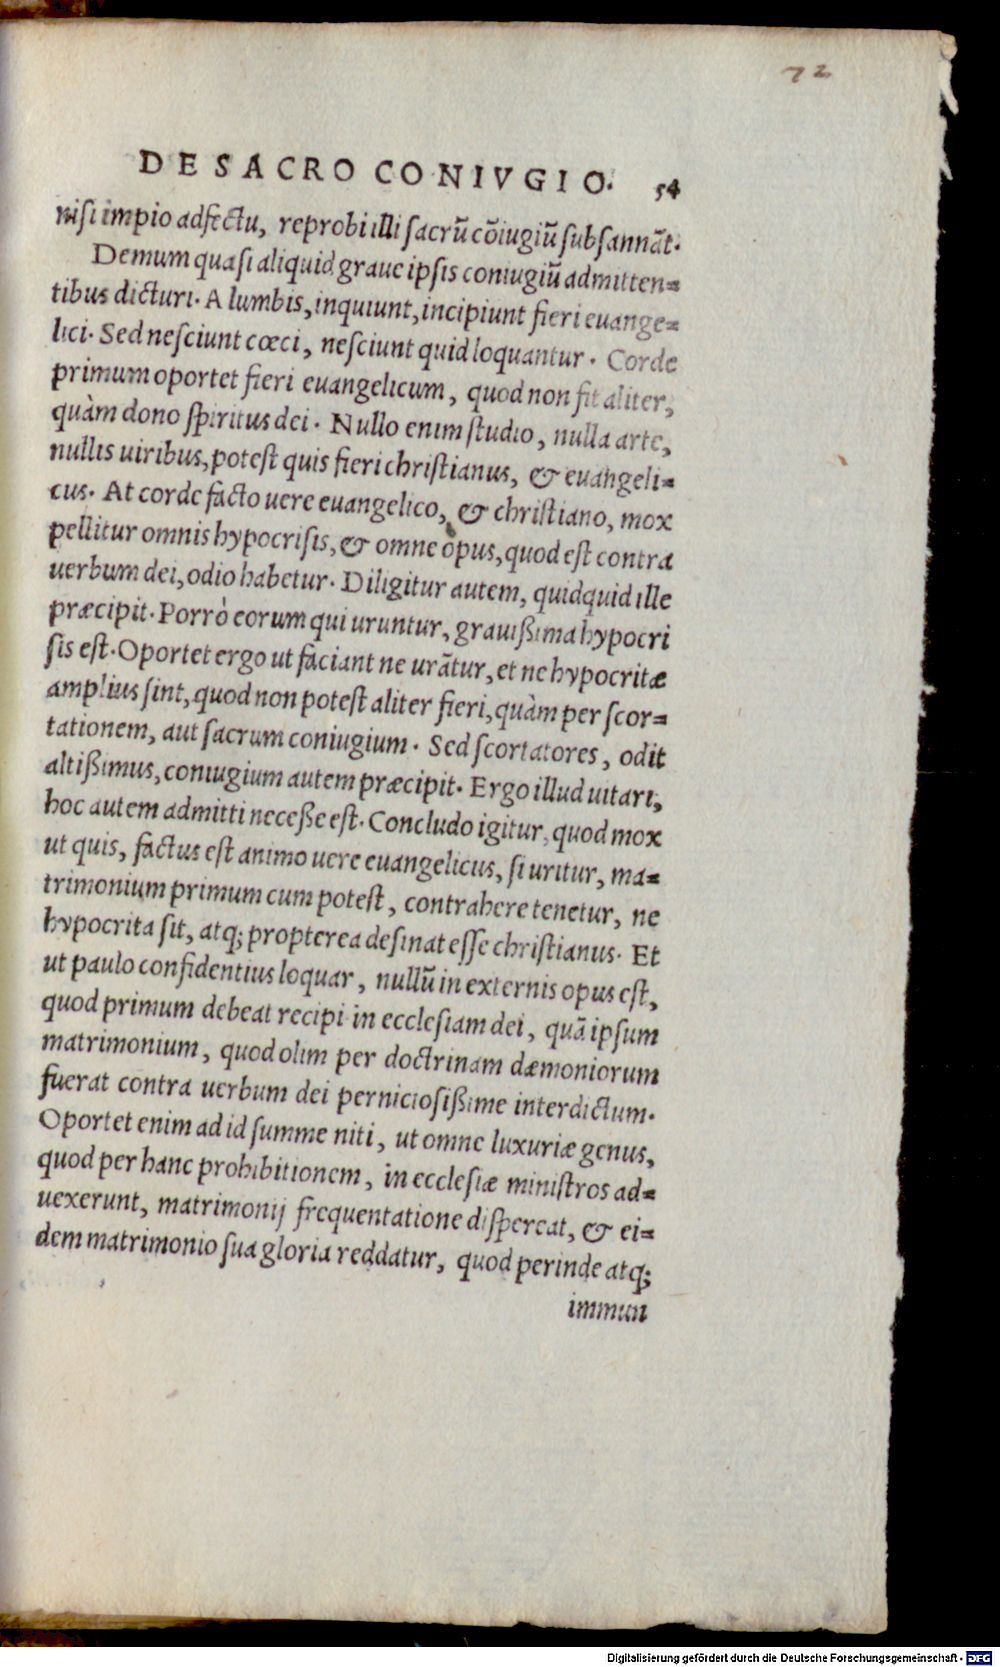 72
DE SACRO CONIVGIO. 54
nisi impio adfectu, reprobi illi sacrū cōiugiū subsannāt.
Demum quasi aliquid graue ipsis coniugiū admitten=
tibus dicturi. A lumbis, inquiunt, incipiunt fieri euange=
lici. Sed nesciunt cœci, nesciunt quid loquantur. Corde
primum oportet fieri euangelicum, quod non fit aliter,
quàm dono spiritus dei. Nullo enim studio, nulla arte,
nullis uiribus, potest quis fieri christianus, & euangeli=
cus. At corde facto uere euangelico, & christiano, mox
pellitur omnis hypocrisis, & omne opus, quod est contra
uerbum dei, odio habetur. Diligitur autem, quidquid ille
præcipit. Porrò eorum qui uruntur, grauißima hypocri
sis est. Oportet ergo ut faciant ne urātur, et ne hypocritæ
amplius sint, quod non potest aliter fieri, quàm per scor=
tationem, aut sacrum coniugium. Sed scortatores, odit
altißimus, coniugium autem præcipit. Ergo illud uitari,
hoc autem admitti neceße est. Concludo igitur, quod mox
ut quis, factus est animo uere euangelicus, si uritur, ma=
trimonium primum cum potest, contrahere tenetur, ne
hypocrita sit, atq; propterea desinat esse christianus. Et
ut paulo confidentius loquar, nullū in externis opus est,
quod primum debeat recipi in ecclesiam dei, quā ipsum
matrimonium, quod olim per doctrinam dæmoniorum
fuerat contra uerbum dei perniciosißime interdictum.
Oportet enim ad id summe niti, ut omne luxuriæ genus,
quod per hanc prohibitionem, in ecclesiæ ministros ad=
uexerunt, matrimonij frequentatione dispereat, & ei=
dem matrimonio sua gloria reddatur, quod perinde atq;
immun
Digitalisierung gefördert durch die Deutsche Forschungsgemeinschaft - DFG